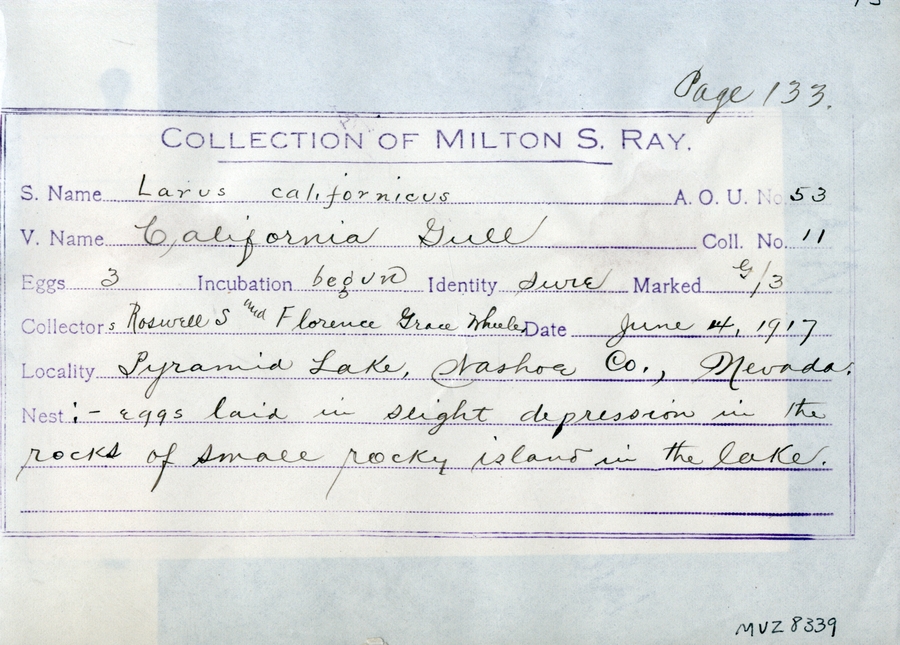 Page 133.
COLLECTION OF MILTON S. RAY.
S. Name Larus californicus A. O. U. No. 53
V. Name California Gull Coll. No. 11
Eggs 3 Incubation begun Identity sure Marked G/3
Collectors Roswell S and Florence Grace Wheeler Date June 4, 1917
Locality Pyramid Lake, Washoe Co., Nevada.
Nest :- eggs laid in slight depression in the
rocks of small rocky island in the lake.
MVZ 8339